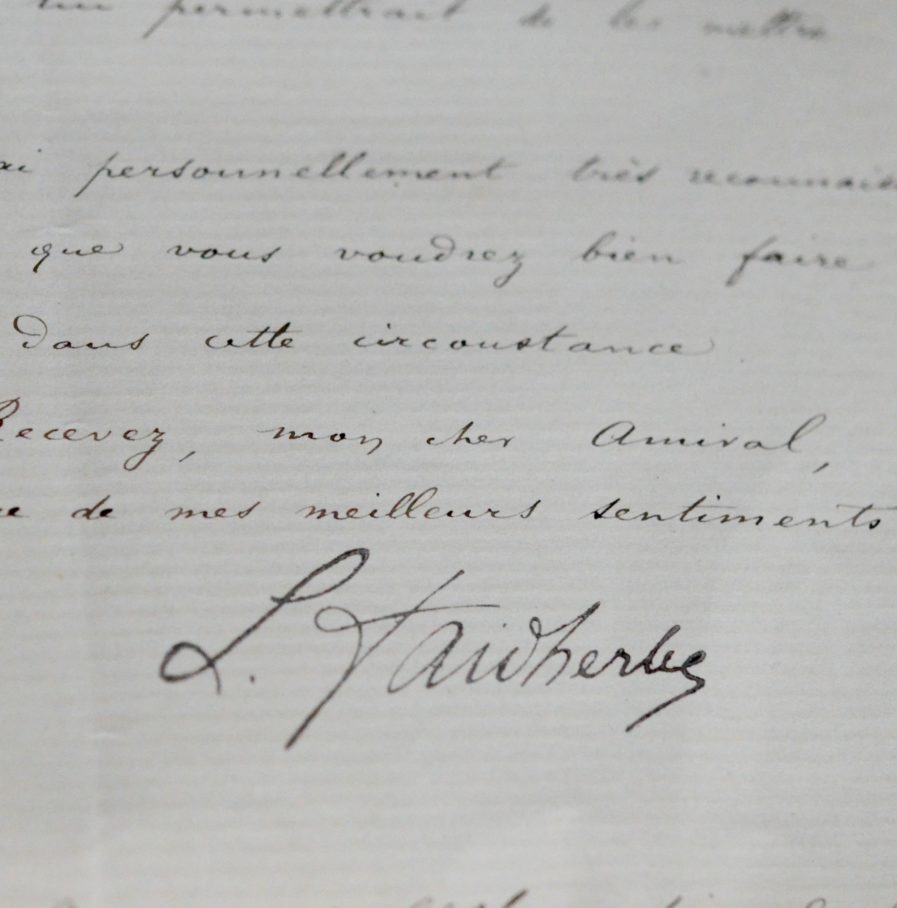 permettrait de les mettre
ai personnellement très reconnais
que vous voudrez bien faire
dans cette circonstance
Recevez, mon cher Amiral,
ce de mes meilleurs sentiments
L. Faidherbe